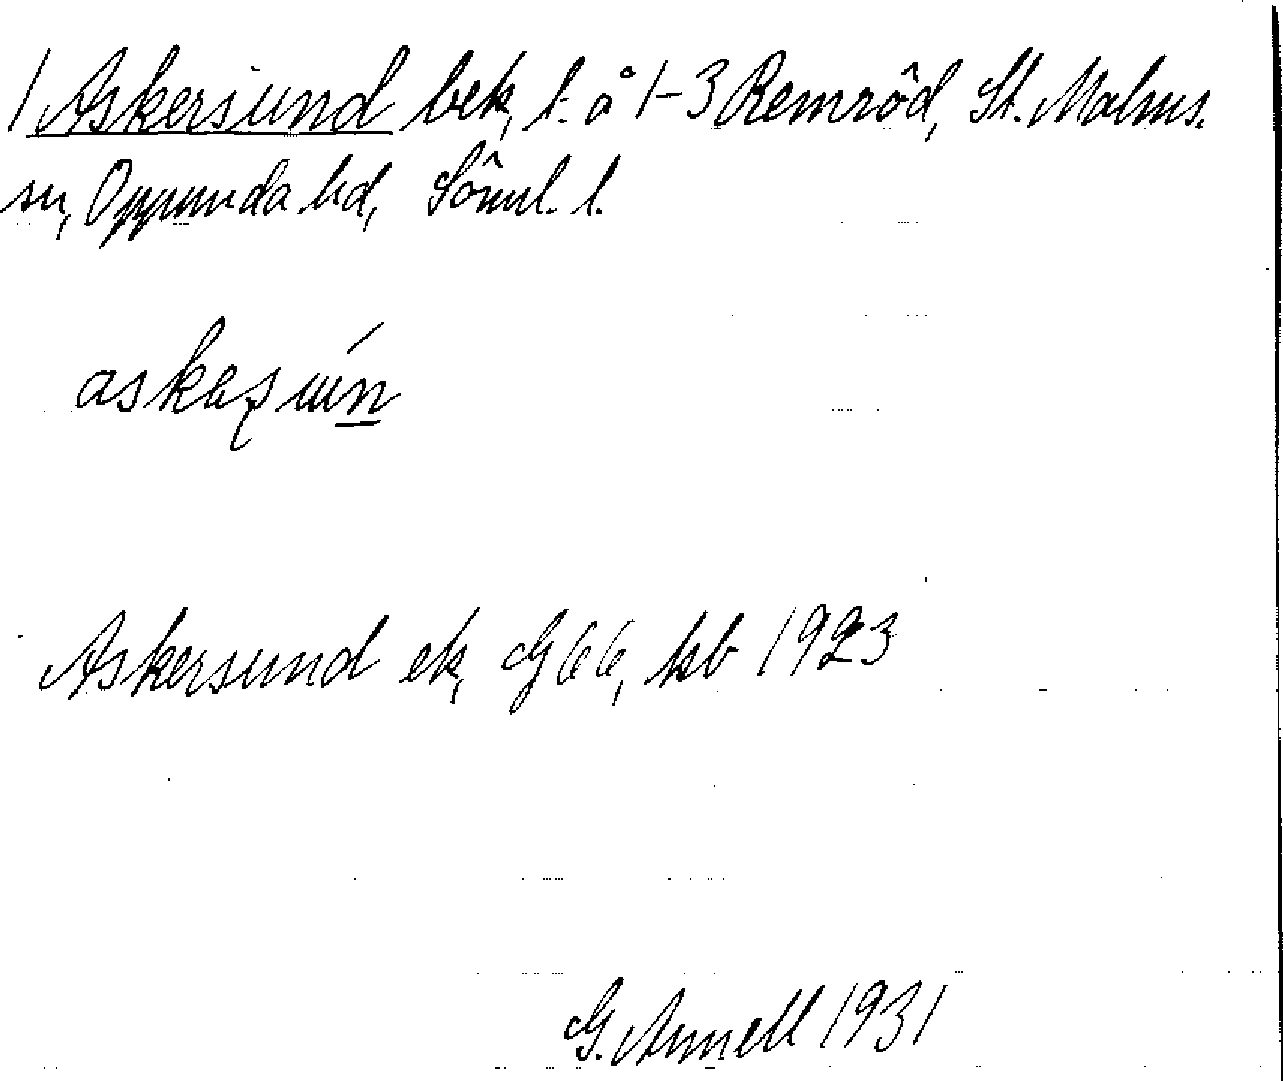 1 Askersund bek, l. å 1-3 Remröd, St. Malms.
sn, Oppunda hd, Söml. l.
Askersund ek, G 66, kb 1923
G. Annell 1931